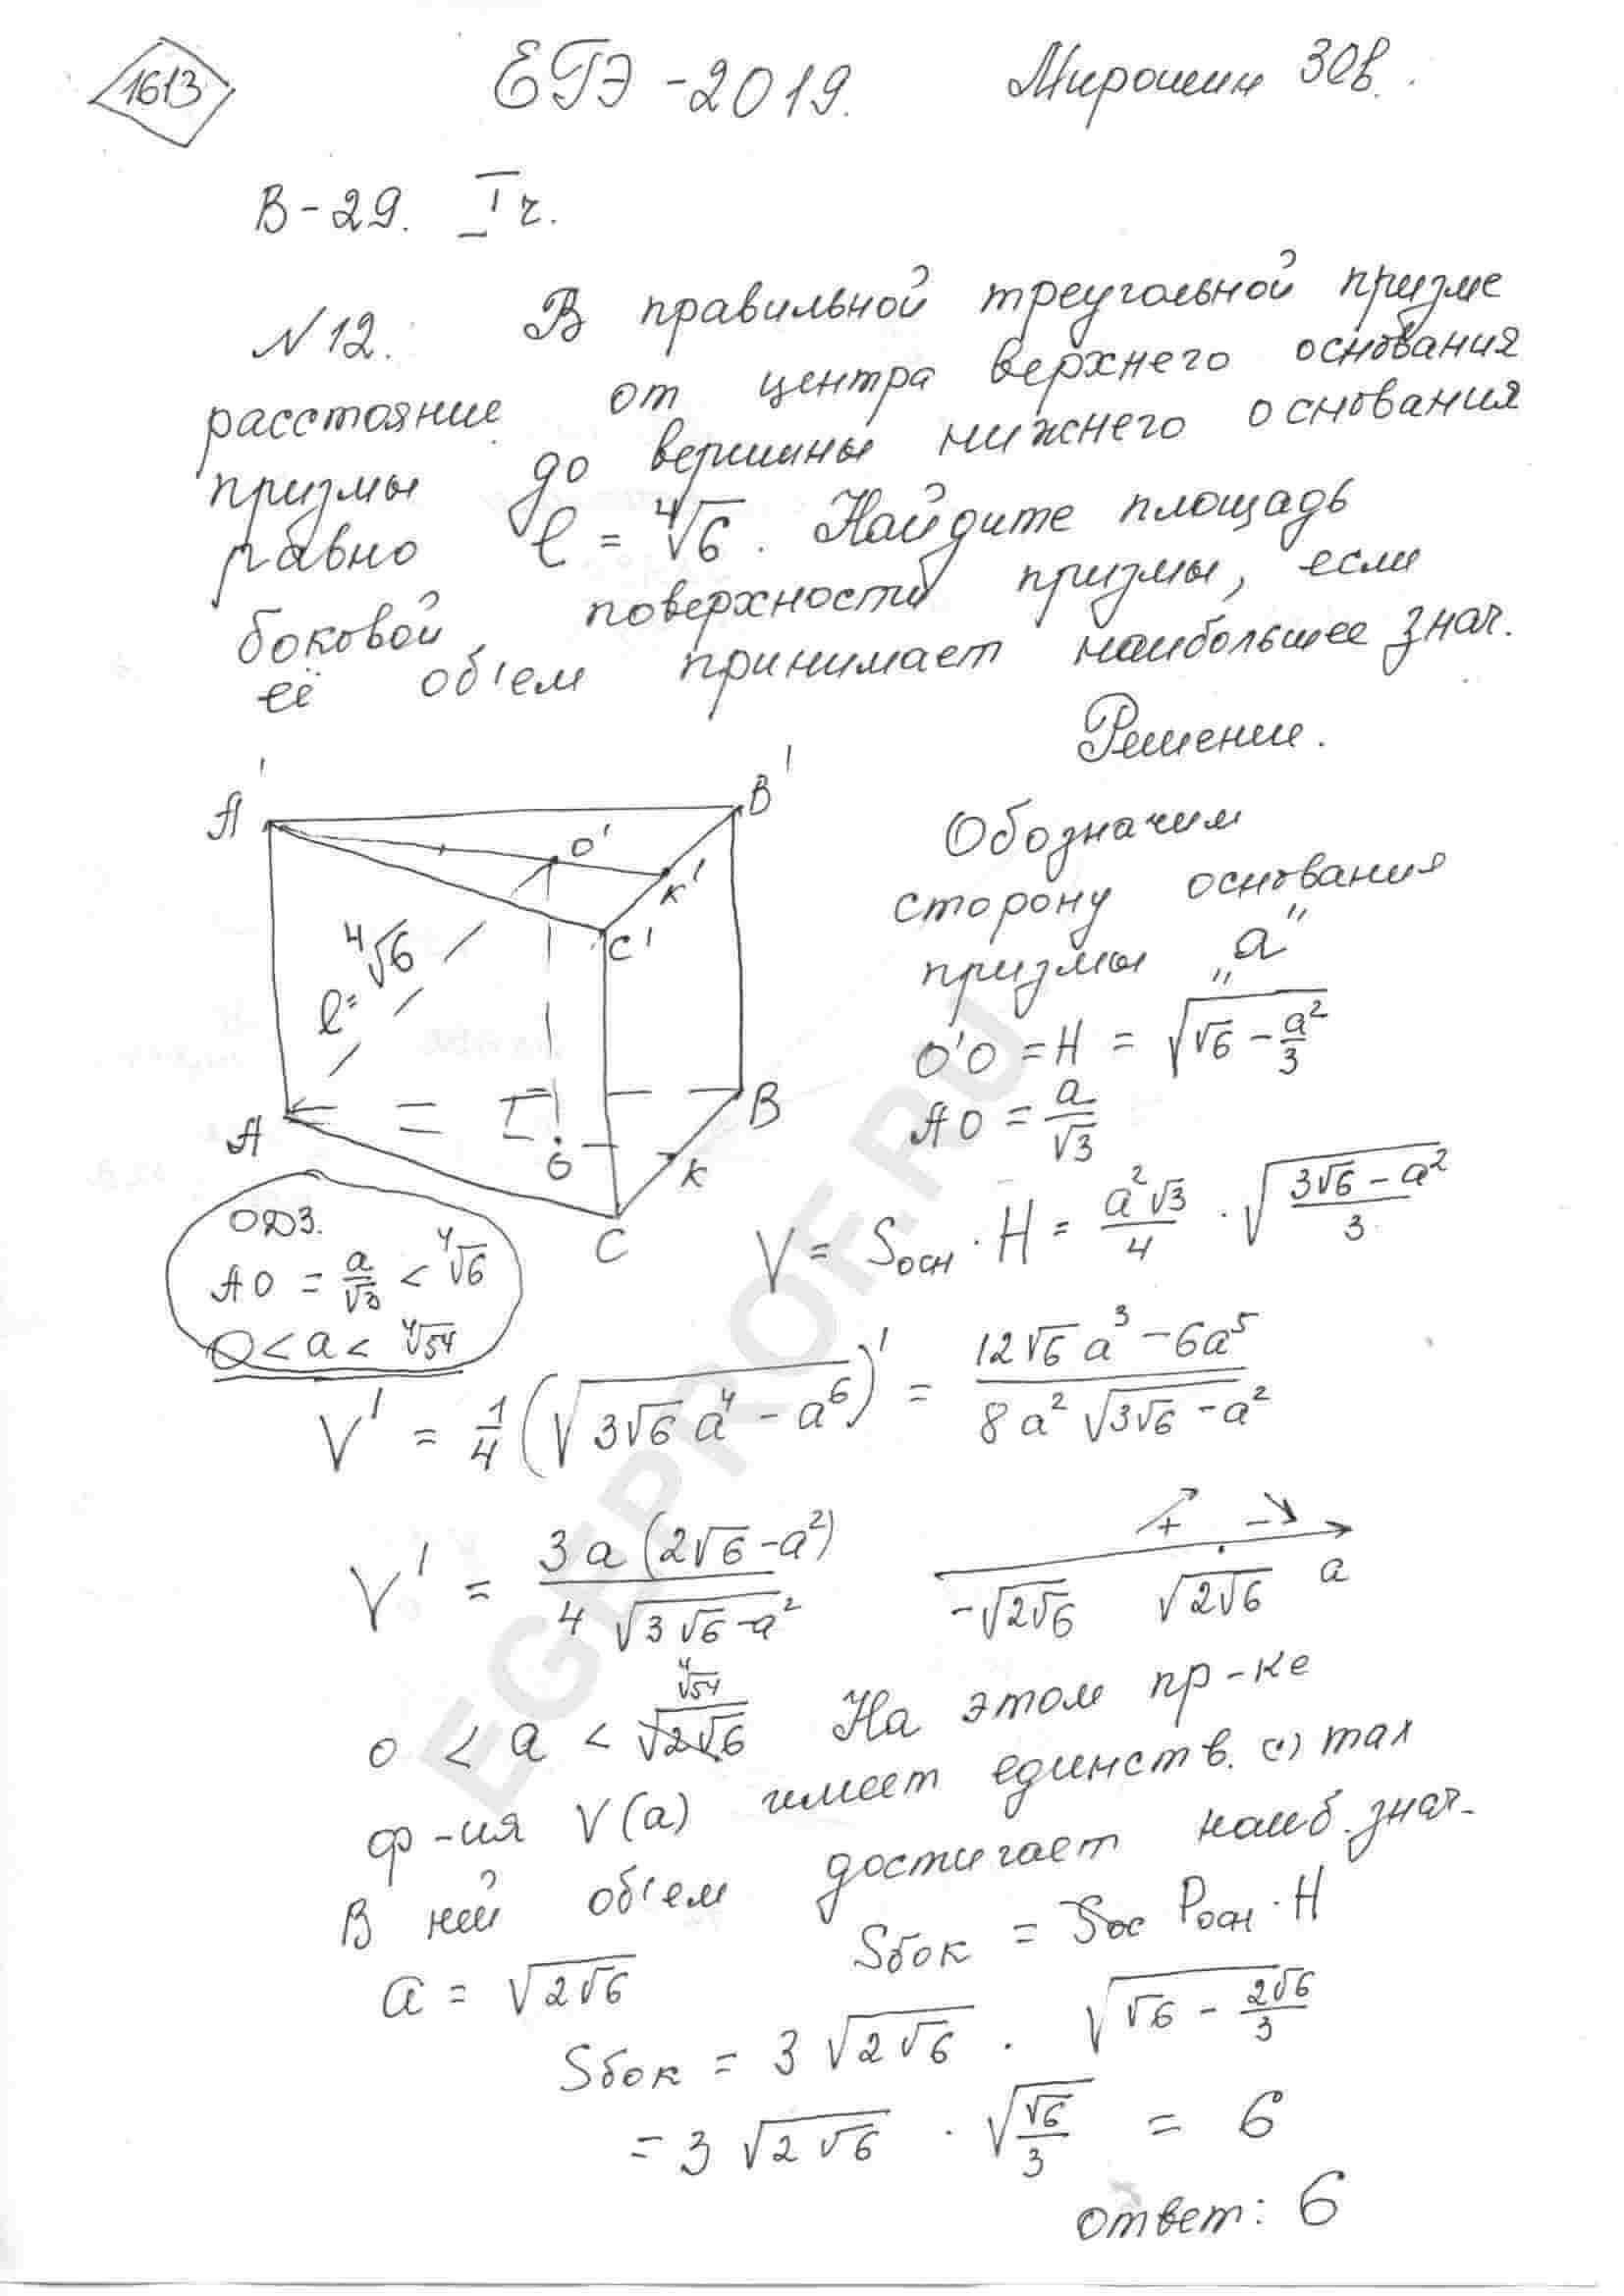 1613
ЕГЭ-2019. Мирошин ЗОв.
В-29. I ч.
N12. В правильной треугольной призме
расстояние от центра верхнего основания
призмы до вершины нижнего основания
равно ℓ = ⁴√6. Найдите площадь
боковой поверхности призмы, если
её об'ем принимает наибольшее знач.
Решение.
A' B' O' K' C'
ℓ= ⁴√6
A O B K C
Обозначим
сторону основания
призмы „a"
O'O = H = √(√6 - a²/3)
AO = a/√3
ОДЗ.
AO = a/√3 < ⁴√6
0 < a < ⁴√54
V = Sосн · H = a²√3/4 · √((3√6 - a²)/3)
V' = 1/4 (√(3√6 a⁴ - a⁶))' = (12√6 a³ - 6a⁵)/(8a² √(3√6 - a²))
V' = 3a(2√6 - a²)/(4√(3√6 - a²))
+ -
-√(2√6) √(2√6) a
0 < a < ⁴√54 На этом пр-ке
ф-ия V(a) имеет единств. (·) max
В ней об'ем достигает наиб. знач.
a = √(2√6) Sбок = Pосн · H
Sбок = 3√(2√6) · √(√6 - 2√6/3)
= 3√(2√6) · √(√6/3) = 6
ответ: 6
EGEPROF.RU